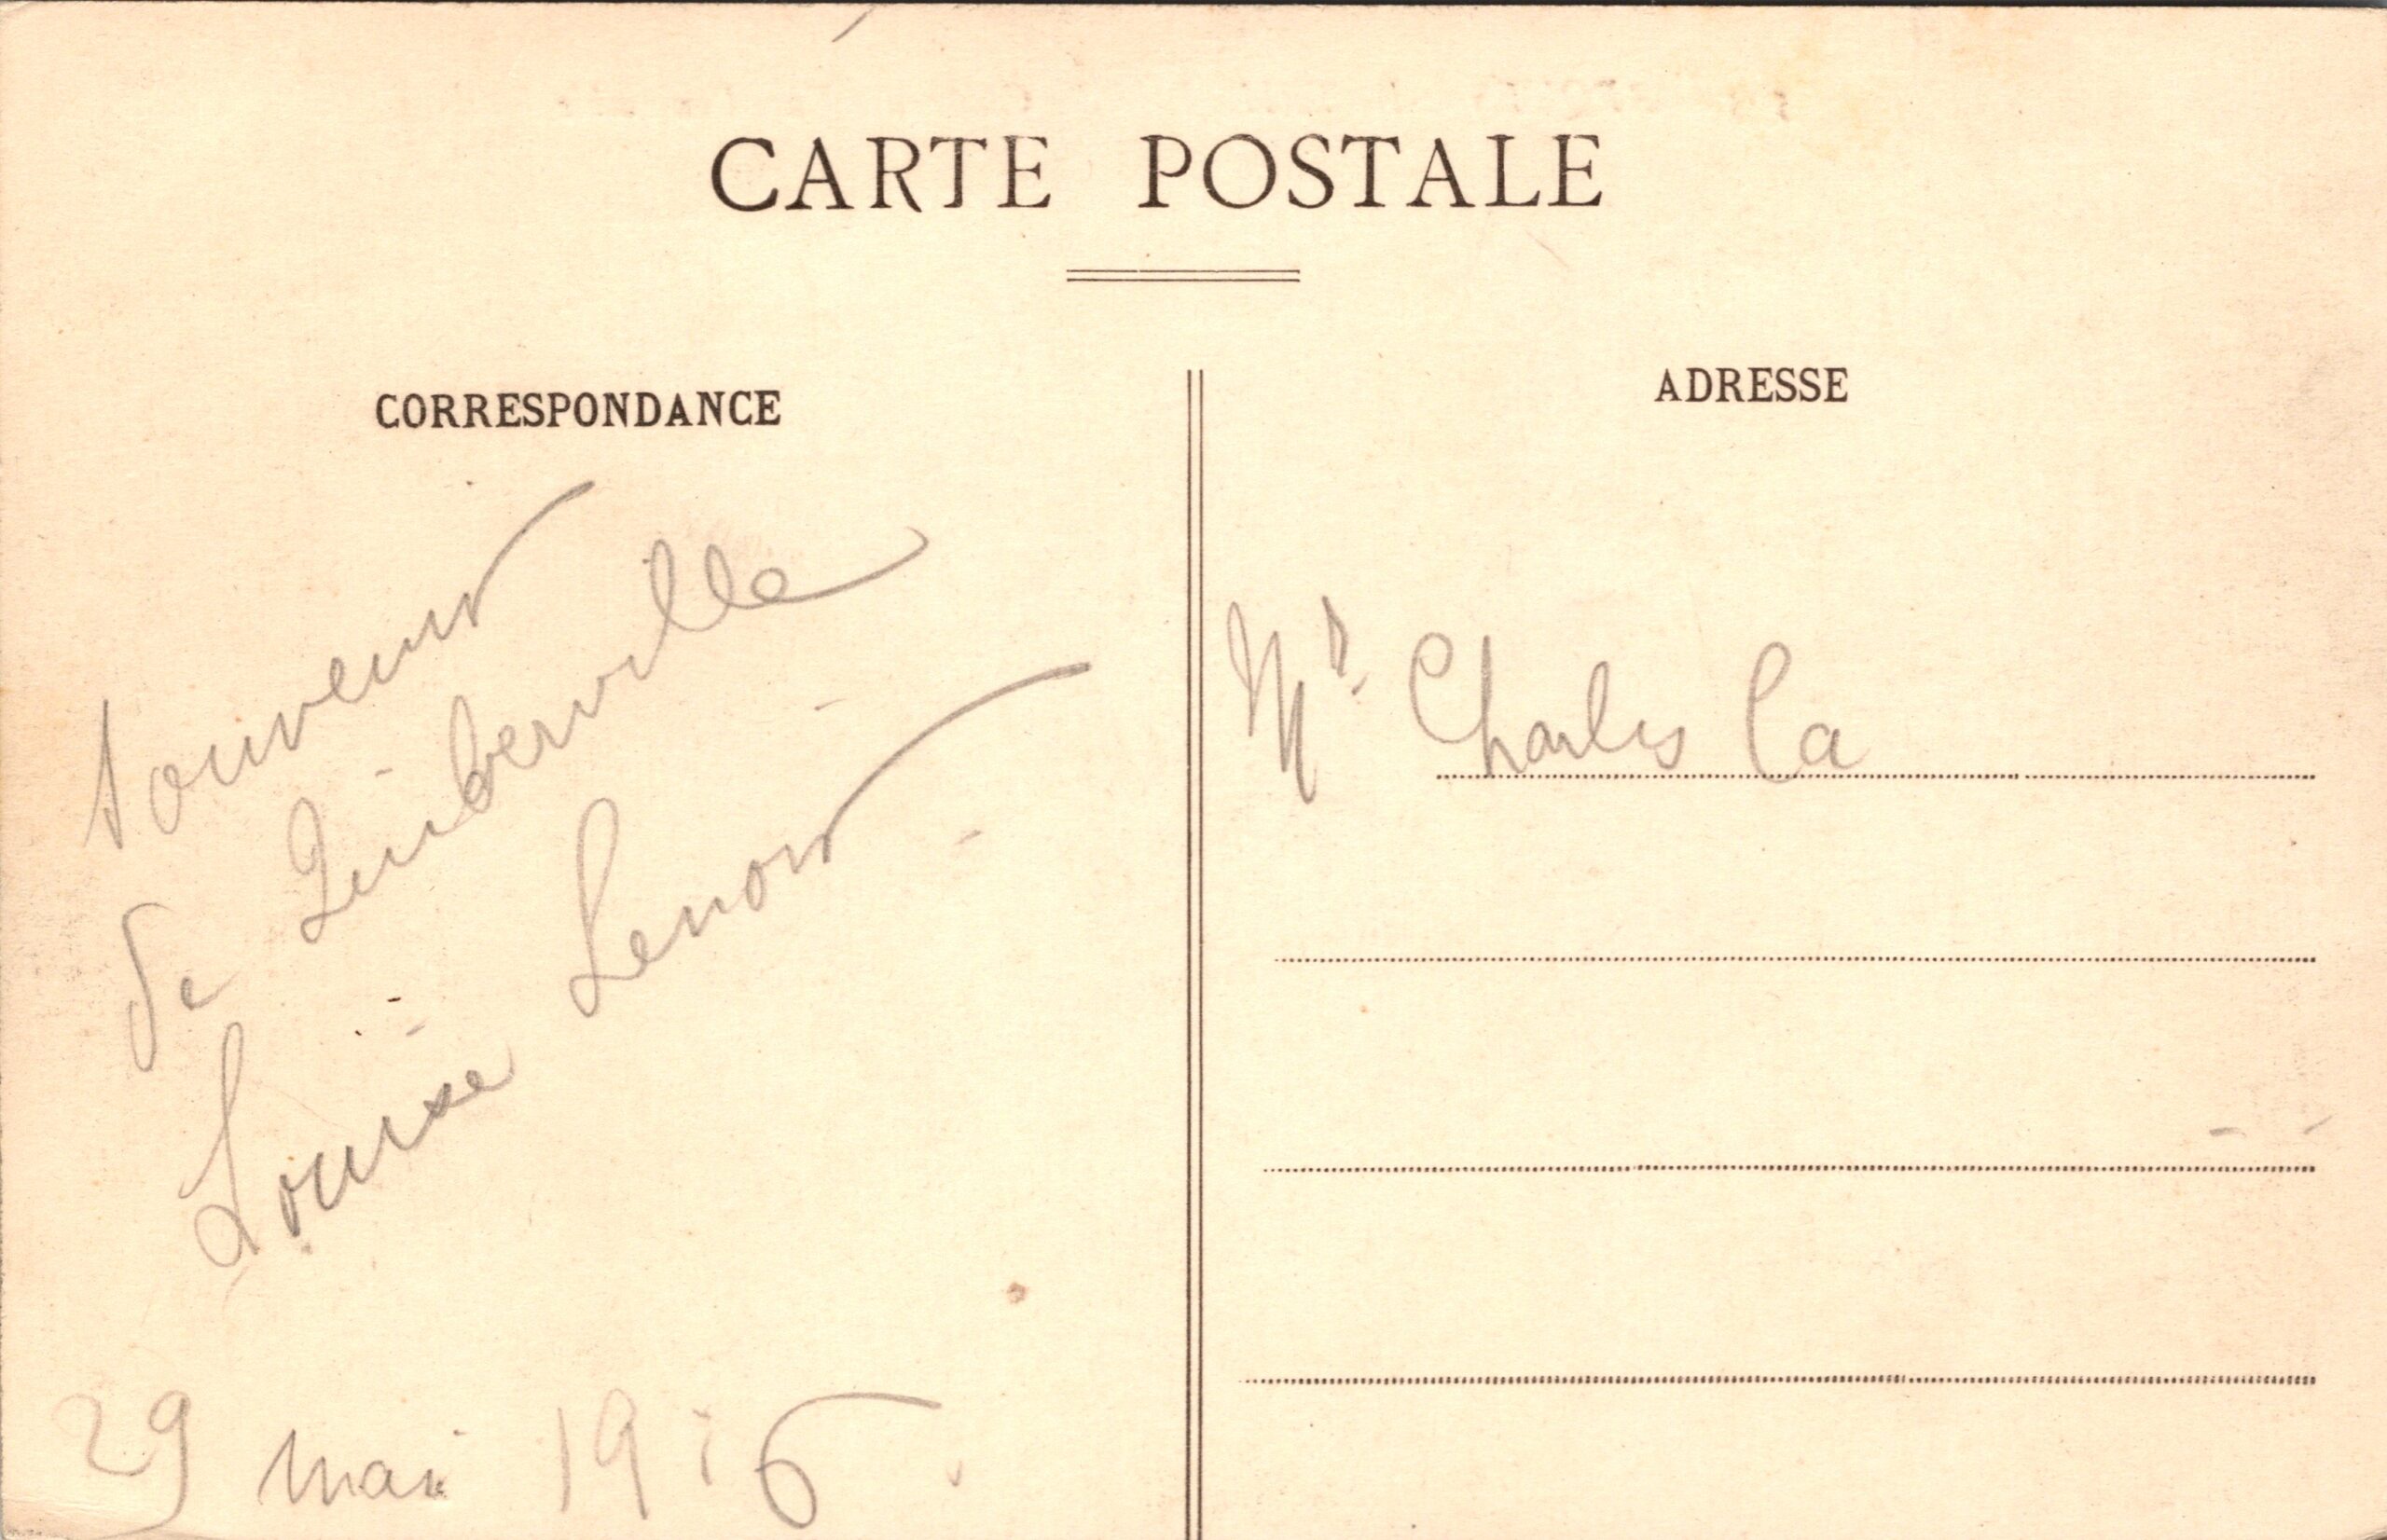 CARTE POSTALE
CORRESPONDANCE
souvenir
de Quiberville
Louise Lenoir
29 mai 1916
ADRESSE
Mr Charles Ca